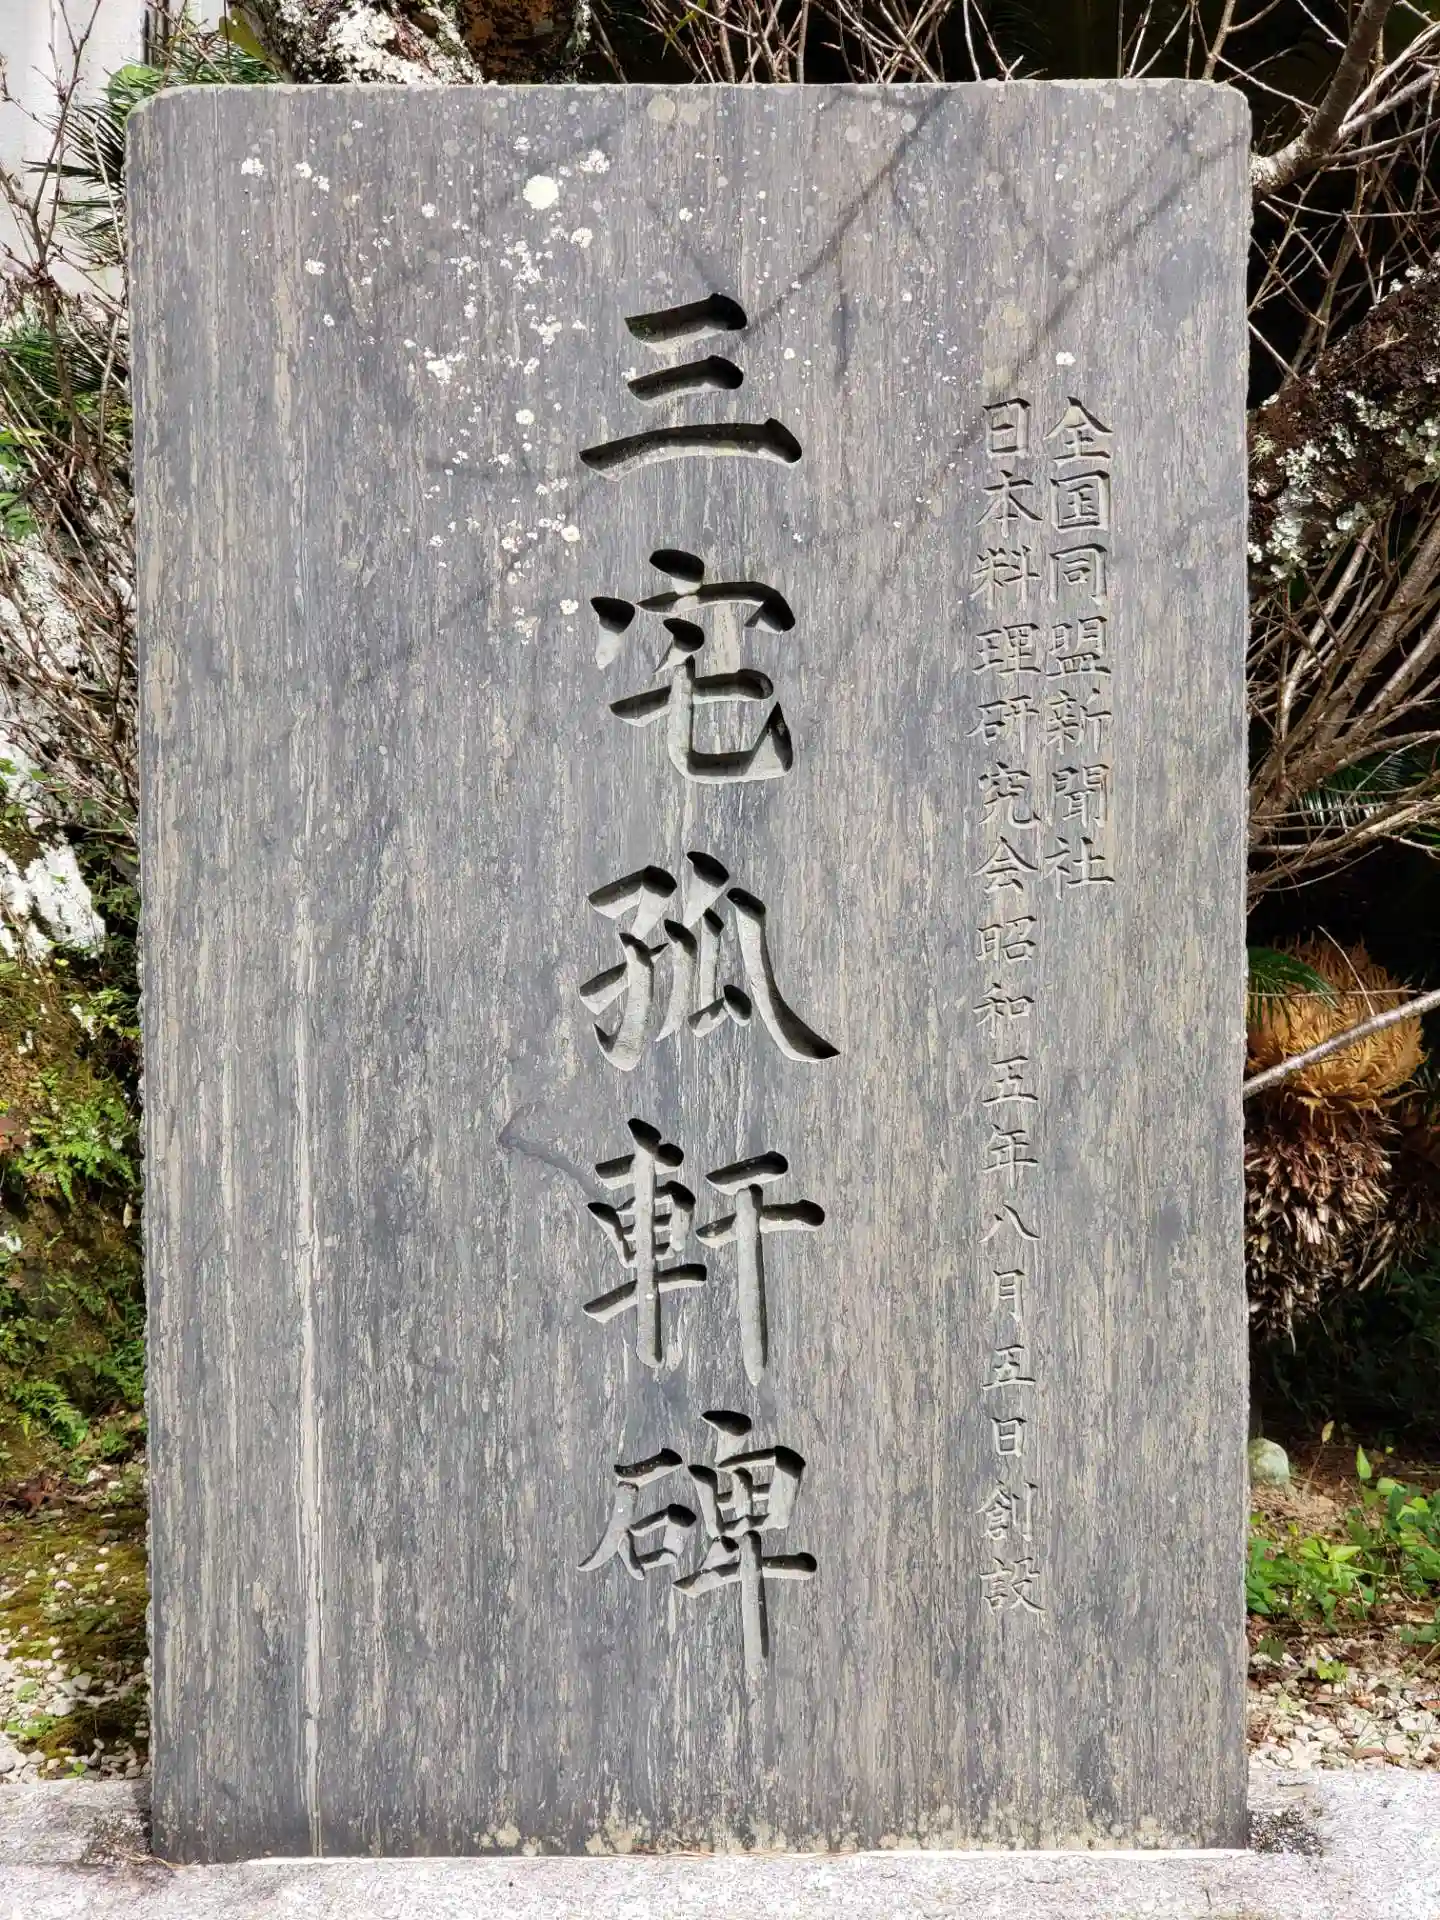 全国同盟新聞社
日本料理研究会昭和五年八月五日創設
三宅孤軒碑